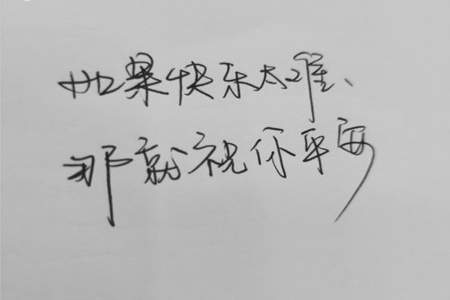 如果快乐太难、
那就祝你平安